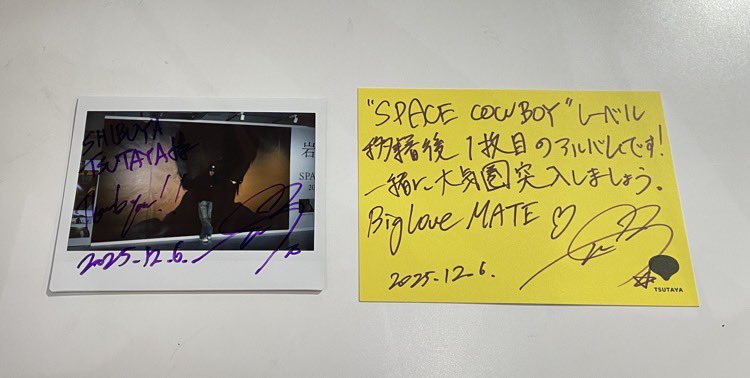 SHIBUYA
TSUTAYA様
Thank you!!
2025.12.6.
岩
SPA
20
"SPACE COWBOY" レーベル
移籍後 1枚目のアルバムです!
一緒に大気圏突入しましょう。
Big Love MATE ♡
2025.12.6.
TSUTAYA